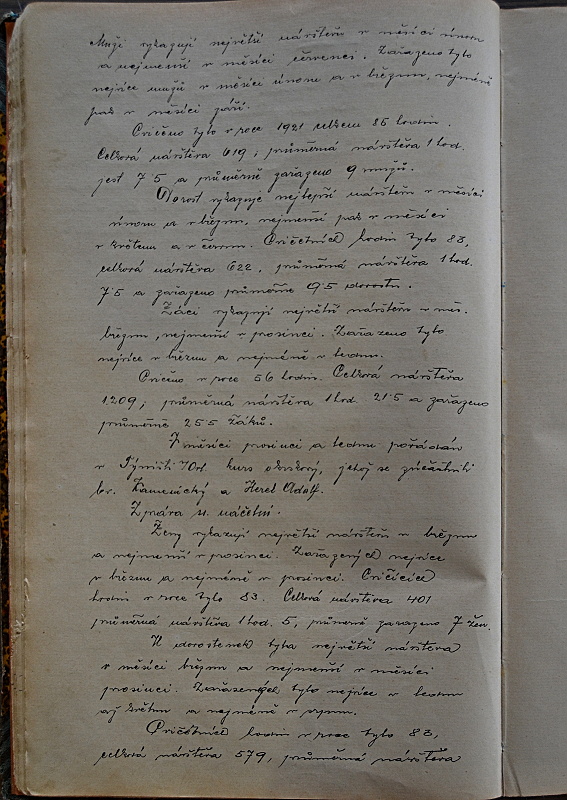 Muži vykazují největší návštěvu v měsíci únoru
a nejmenší v měsíci červenci. Zařazeno bylo
nejvíce mužů v měsíci únoru a v březnu, nejméně
pak v měsíci září.
Cvičeno bylo v roce 1921 celkem 85 hodin.
Celková návštěva 619, průměrná návštěva 1 hod.
jest 7·5 a průměrně zařazeno 9 mužů.
Dorost vykazuje nejlepší návštěvu v měsíci
únoru a v březnu, nejmenší pak v měsíci
v květnu a v červnu. Cvičebních hodin bylo 83,
celková návštěva 622, průměrná návštěva 1 hod.
7·5 a zařazeno průměrně 9·5 dorostu.
Žáci vykazují největší návštěvu v měs.
březnu, nejmenší v prosinci. Zařazeno bylo
nejvíce v březnu a nejméně v lednu.
Cvičeno v roce 56 hodin. Celková návštěva
1.209, průměrná návštěva 1 hod. 21·5 a zařazeno
průměrně 25·5 žáků.
V měsíci prosinci a lednu pořádán
v Týništi n/Orl. kurs okrskový, jehož se zúčastnili
br. Kamenický a Hercl Adolf.
Zpráva s. náčelní.
Ženy vykazují největší návštěvu v březnu
a nejmenší v prosinci. Zařazených nejvíce
v březnu a nejméně v prosinci. Cvičících
hodin v roce bylo 83. Celková návštěva 401
průměrná návštěva 1 hod. 5, průměrně zařazeno 7 žen.
U dorostenek byla největší návštěva
v měsíci březnu a nejmenší v měsíci
prosinci. Zařazených bylo nejvíce v lednu
až květnu a nejméně v srpnu.
Cvičebních hodin v roce bylo 83,
celková návštěva 579, průměrná návštěva